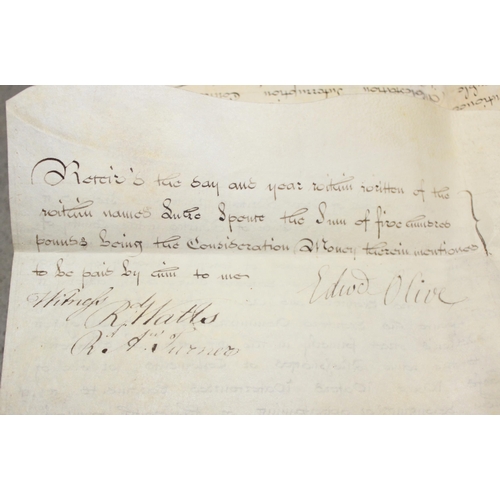 Receiv'd the day and year within written of the
within named Luke Spence the Sum of five hundred
pounds being the Consideration Money therein mentioned
to be paid by him to me
Edwd Olive
Witness
Rd
Rd Turner